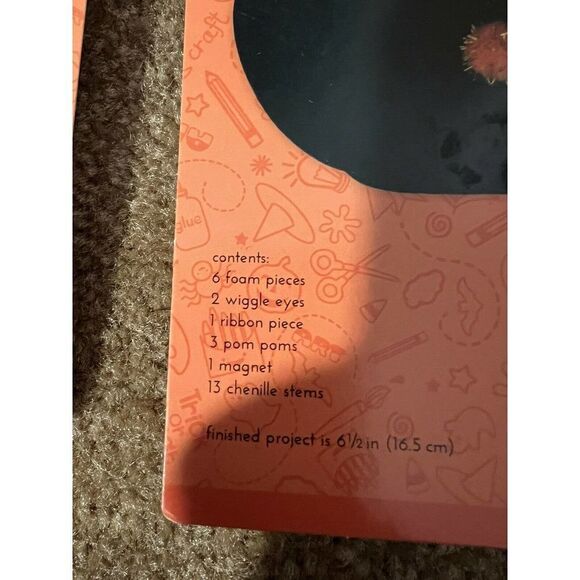 craft
glue
contents:
6 foam pieces
2 wiggle eyes
1 ribbon piece
3 pom poms
1 magnet
13 chenille stems
finished project is 6 1/2 in (16.5 cm)